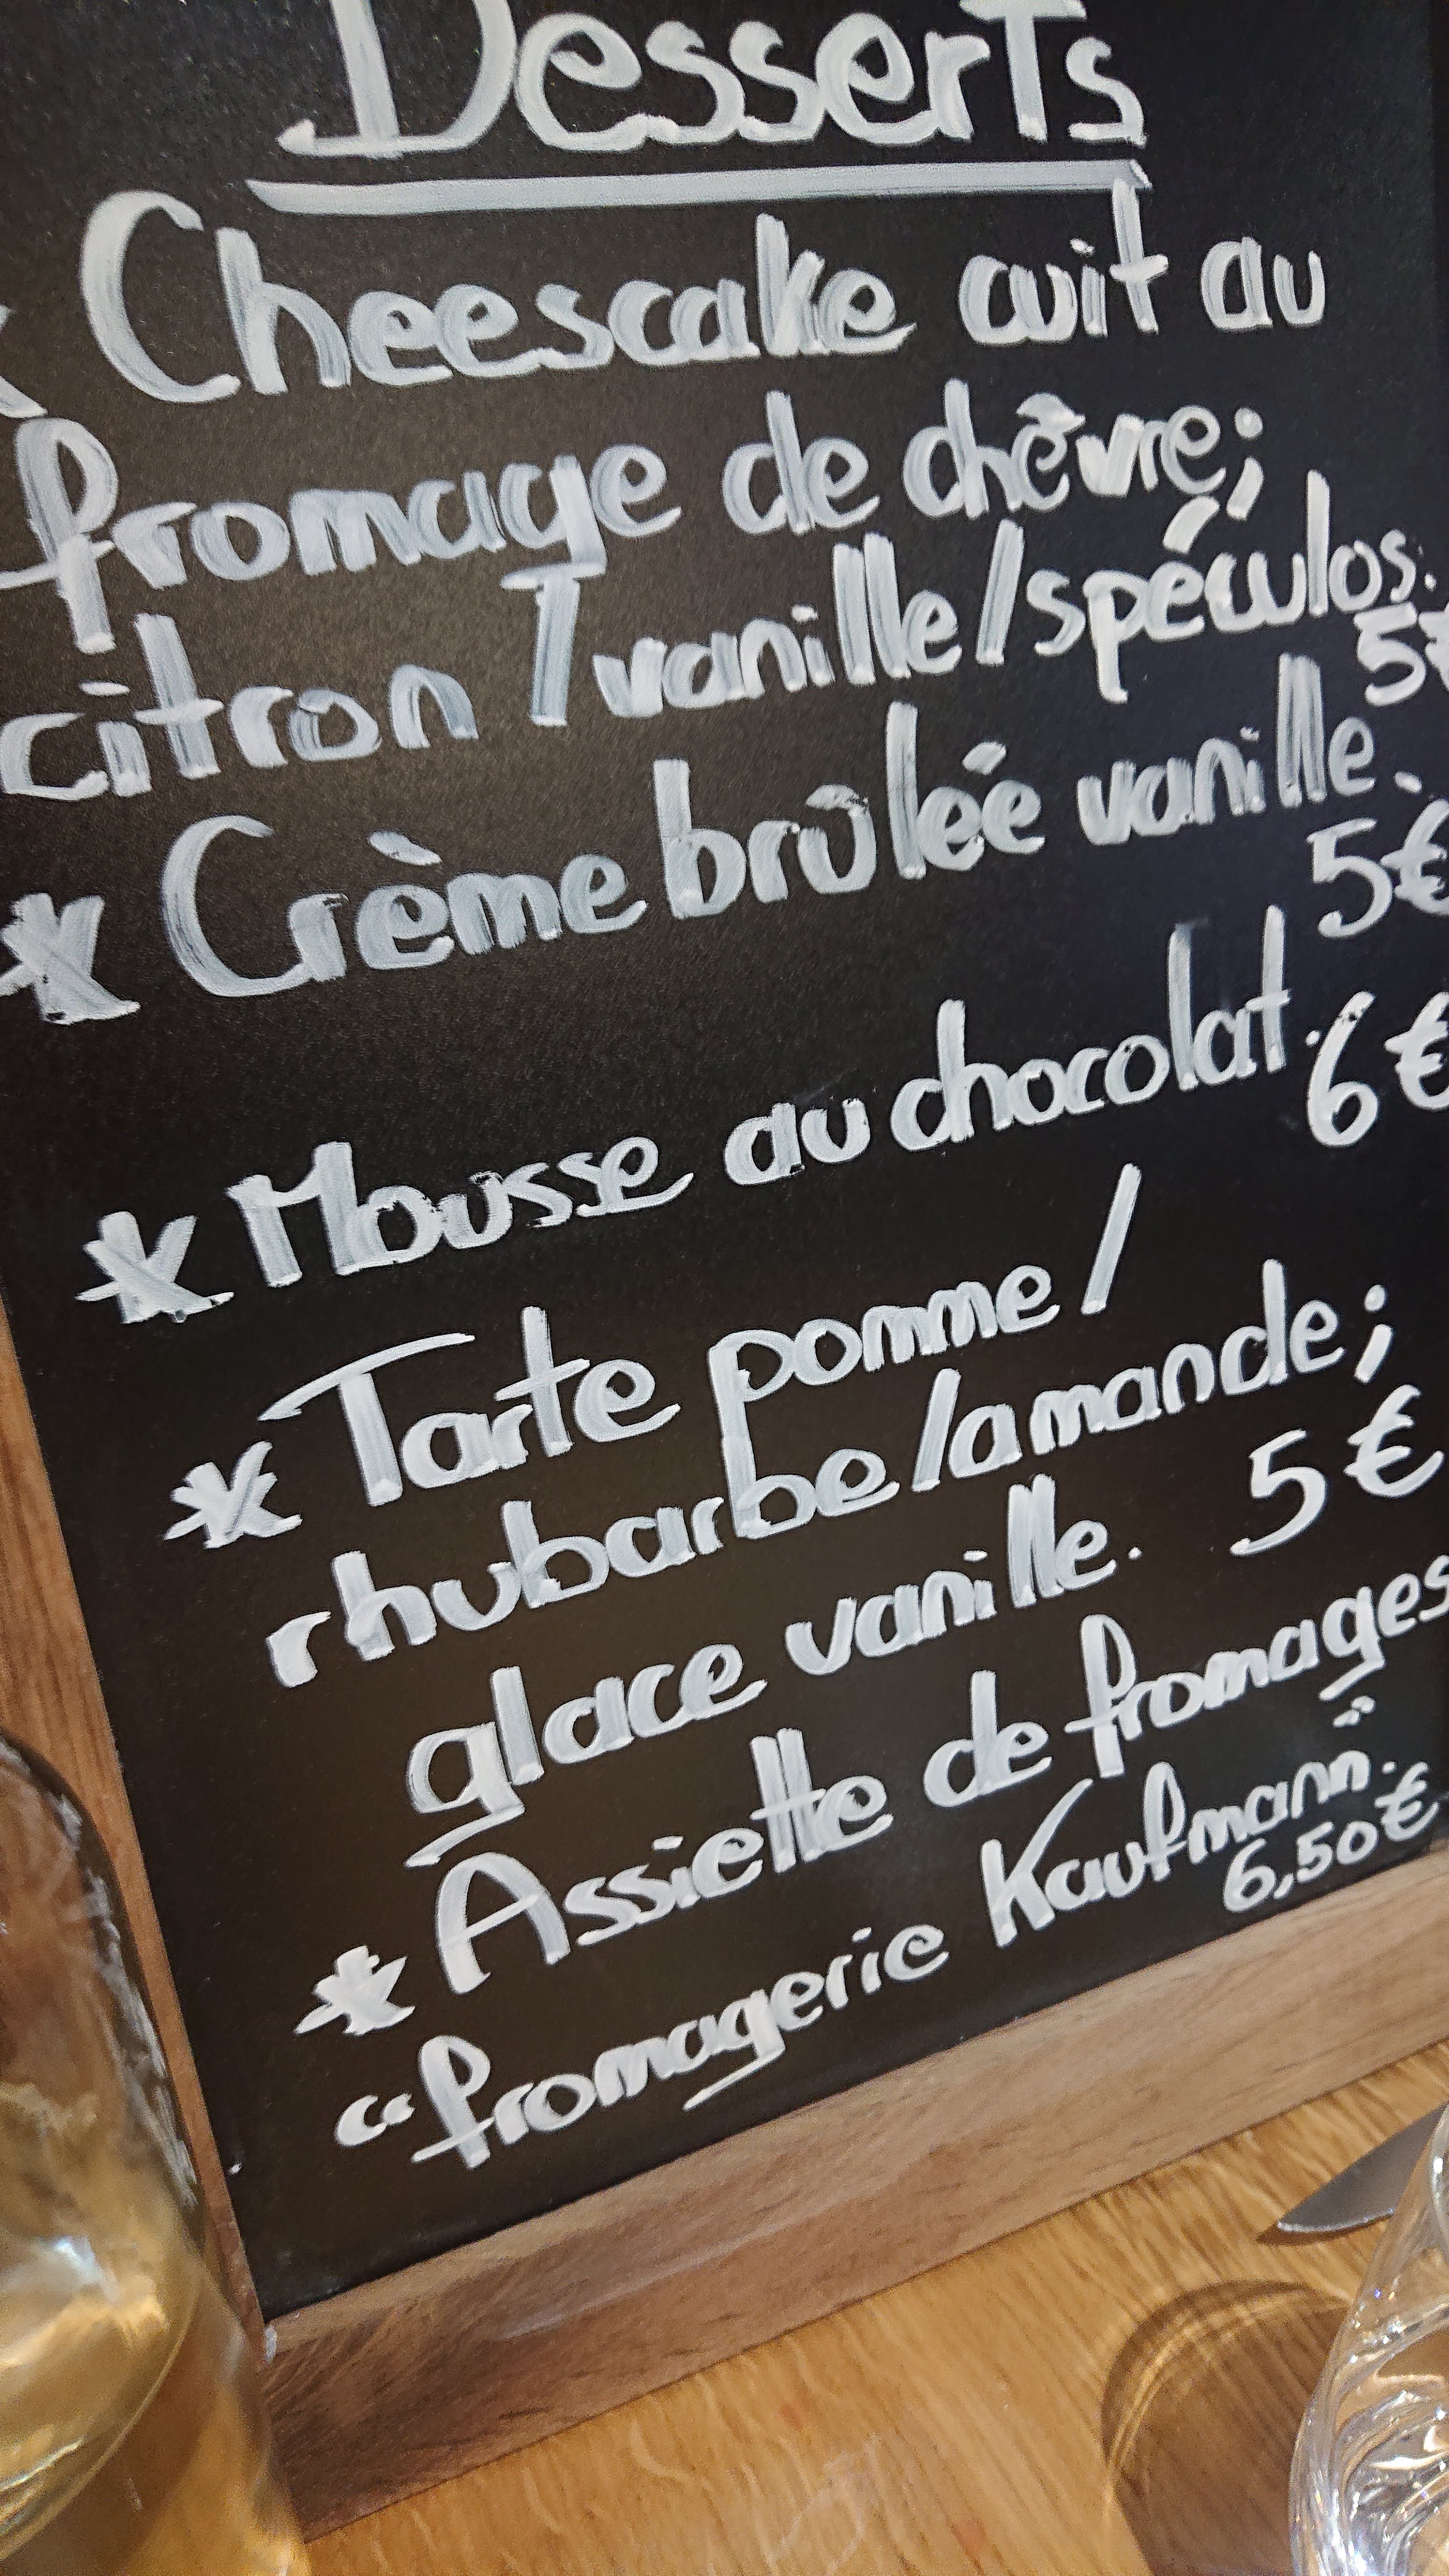 Desserts
* Cheescake cuit au
fromage de chèvre;
citron / vanille / spéculos.
5€
* Crème brûlée vanille.
5€
* Mousse au chocolat.
6€
* Tarte pomme /
rhubarbe / amande;
glace vanille. 5€
* Assiette de fromages
"fromagerie Kaufmann".
6,50€